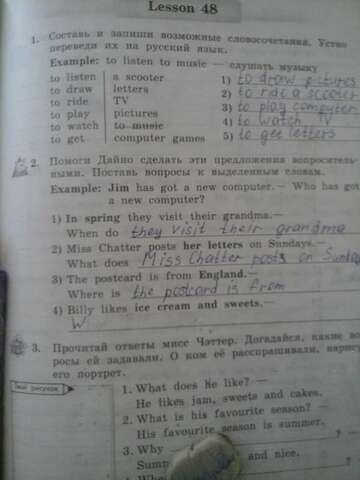 Lesson 48
1. Составь и запиши возможные словосочетания. Устно
переведи их на русский язык.
Example: to listen to music — слушать музыку
to listen a scooter 1) to draw pictures
to draw letters 2) to ride a scooter
to ride TV 3) to play computer
to play pictures 4) to watch TV
to watch to music 5) to get letters
to get computer games
2. Помоги Дайно сделать эти предложения вопроситель-
ными. Поставь вопросы к выделенным словам.
Example: Jim has got a new computer.— Who has got
a new computer?
1) In spring they visit their grandma.—
When do they visit their grandma
2) Miss Chatter posts her letters on Sundays.—
What does Miss Chatter posts on Sunday
3) The postcard is from England.—
Where is the postcard is from
4) Billy likes ice cream and sweets.—
W
3. Прочитай ответы мисс Чэттер. Догадайся, какие во
росы ей задавали. О ком её расспрашивали, нарису
его портрет.
Твой рисунок
1. What does he like? —
He likes jam, sweets and cakes.
2. What is his favourite season? —
His favourite season is summer.
3. Why ?
and nice.
4.